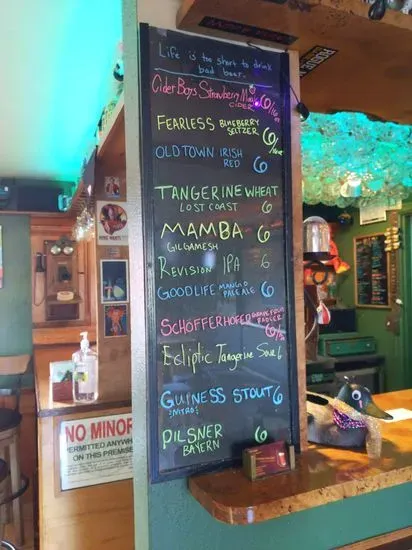 Life is too short to drink
bad beer.
Cider Boys Strawberry
CIDER 6/16
FEARLESS BLUEBERRY
SELTZER 6
OLD TOWN IRISH
RED 6
TANGERINE WHEAT
LOST COAST 6
MAMBA 6
GILGAMESH
REVISION IPA 6
GOODLIFE MANGO
PALE ALE 6
SCHÖFFERHOFER
RADLER
Ecliptic Tangerine Sour 6
GUINESS STOUT 6
NITRO
PILSNER 6
BAYERN
NO MINOR
PERMITTED ANYW
ON THIS PREMISE